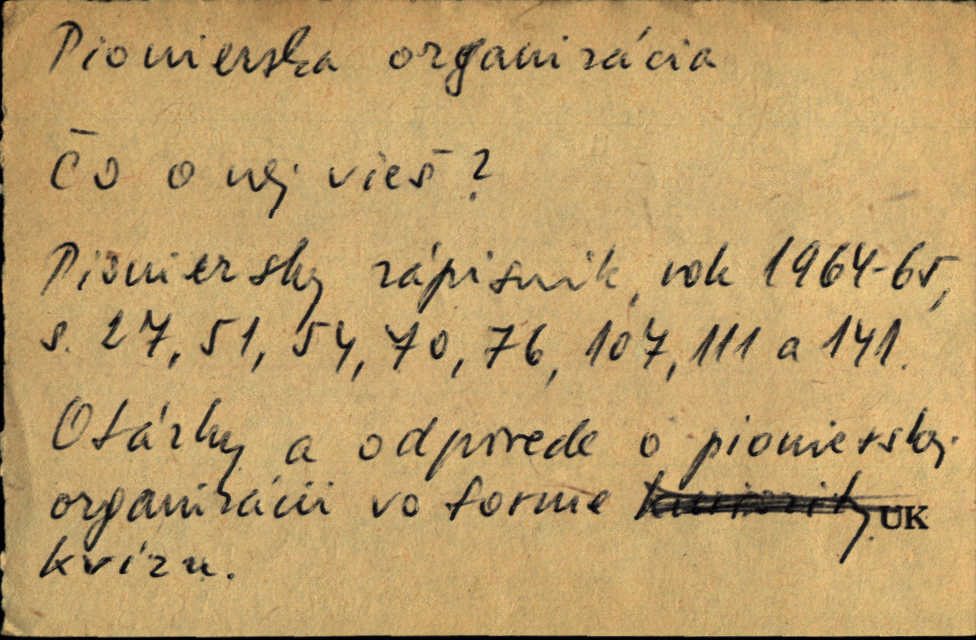 Pionierska organizácia
Čo o nej vieš?
Pioniersky zápisník, rok 1964-65,
s. 27, 51, 54, 70, 76, 107, 111 a 141.
Otázky a odpovede o pionierskej
organizácii vo forme UK
kvízu.